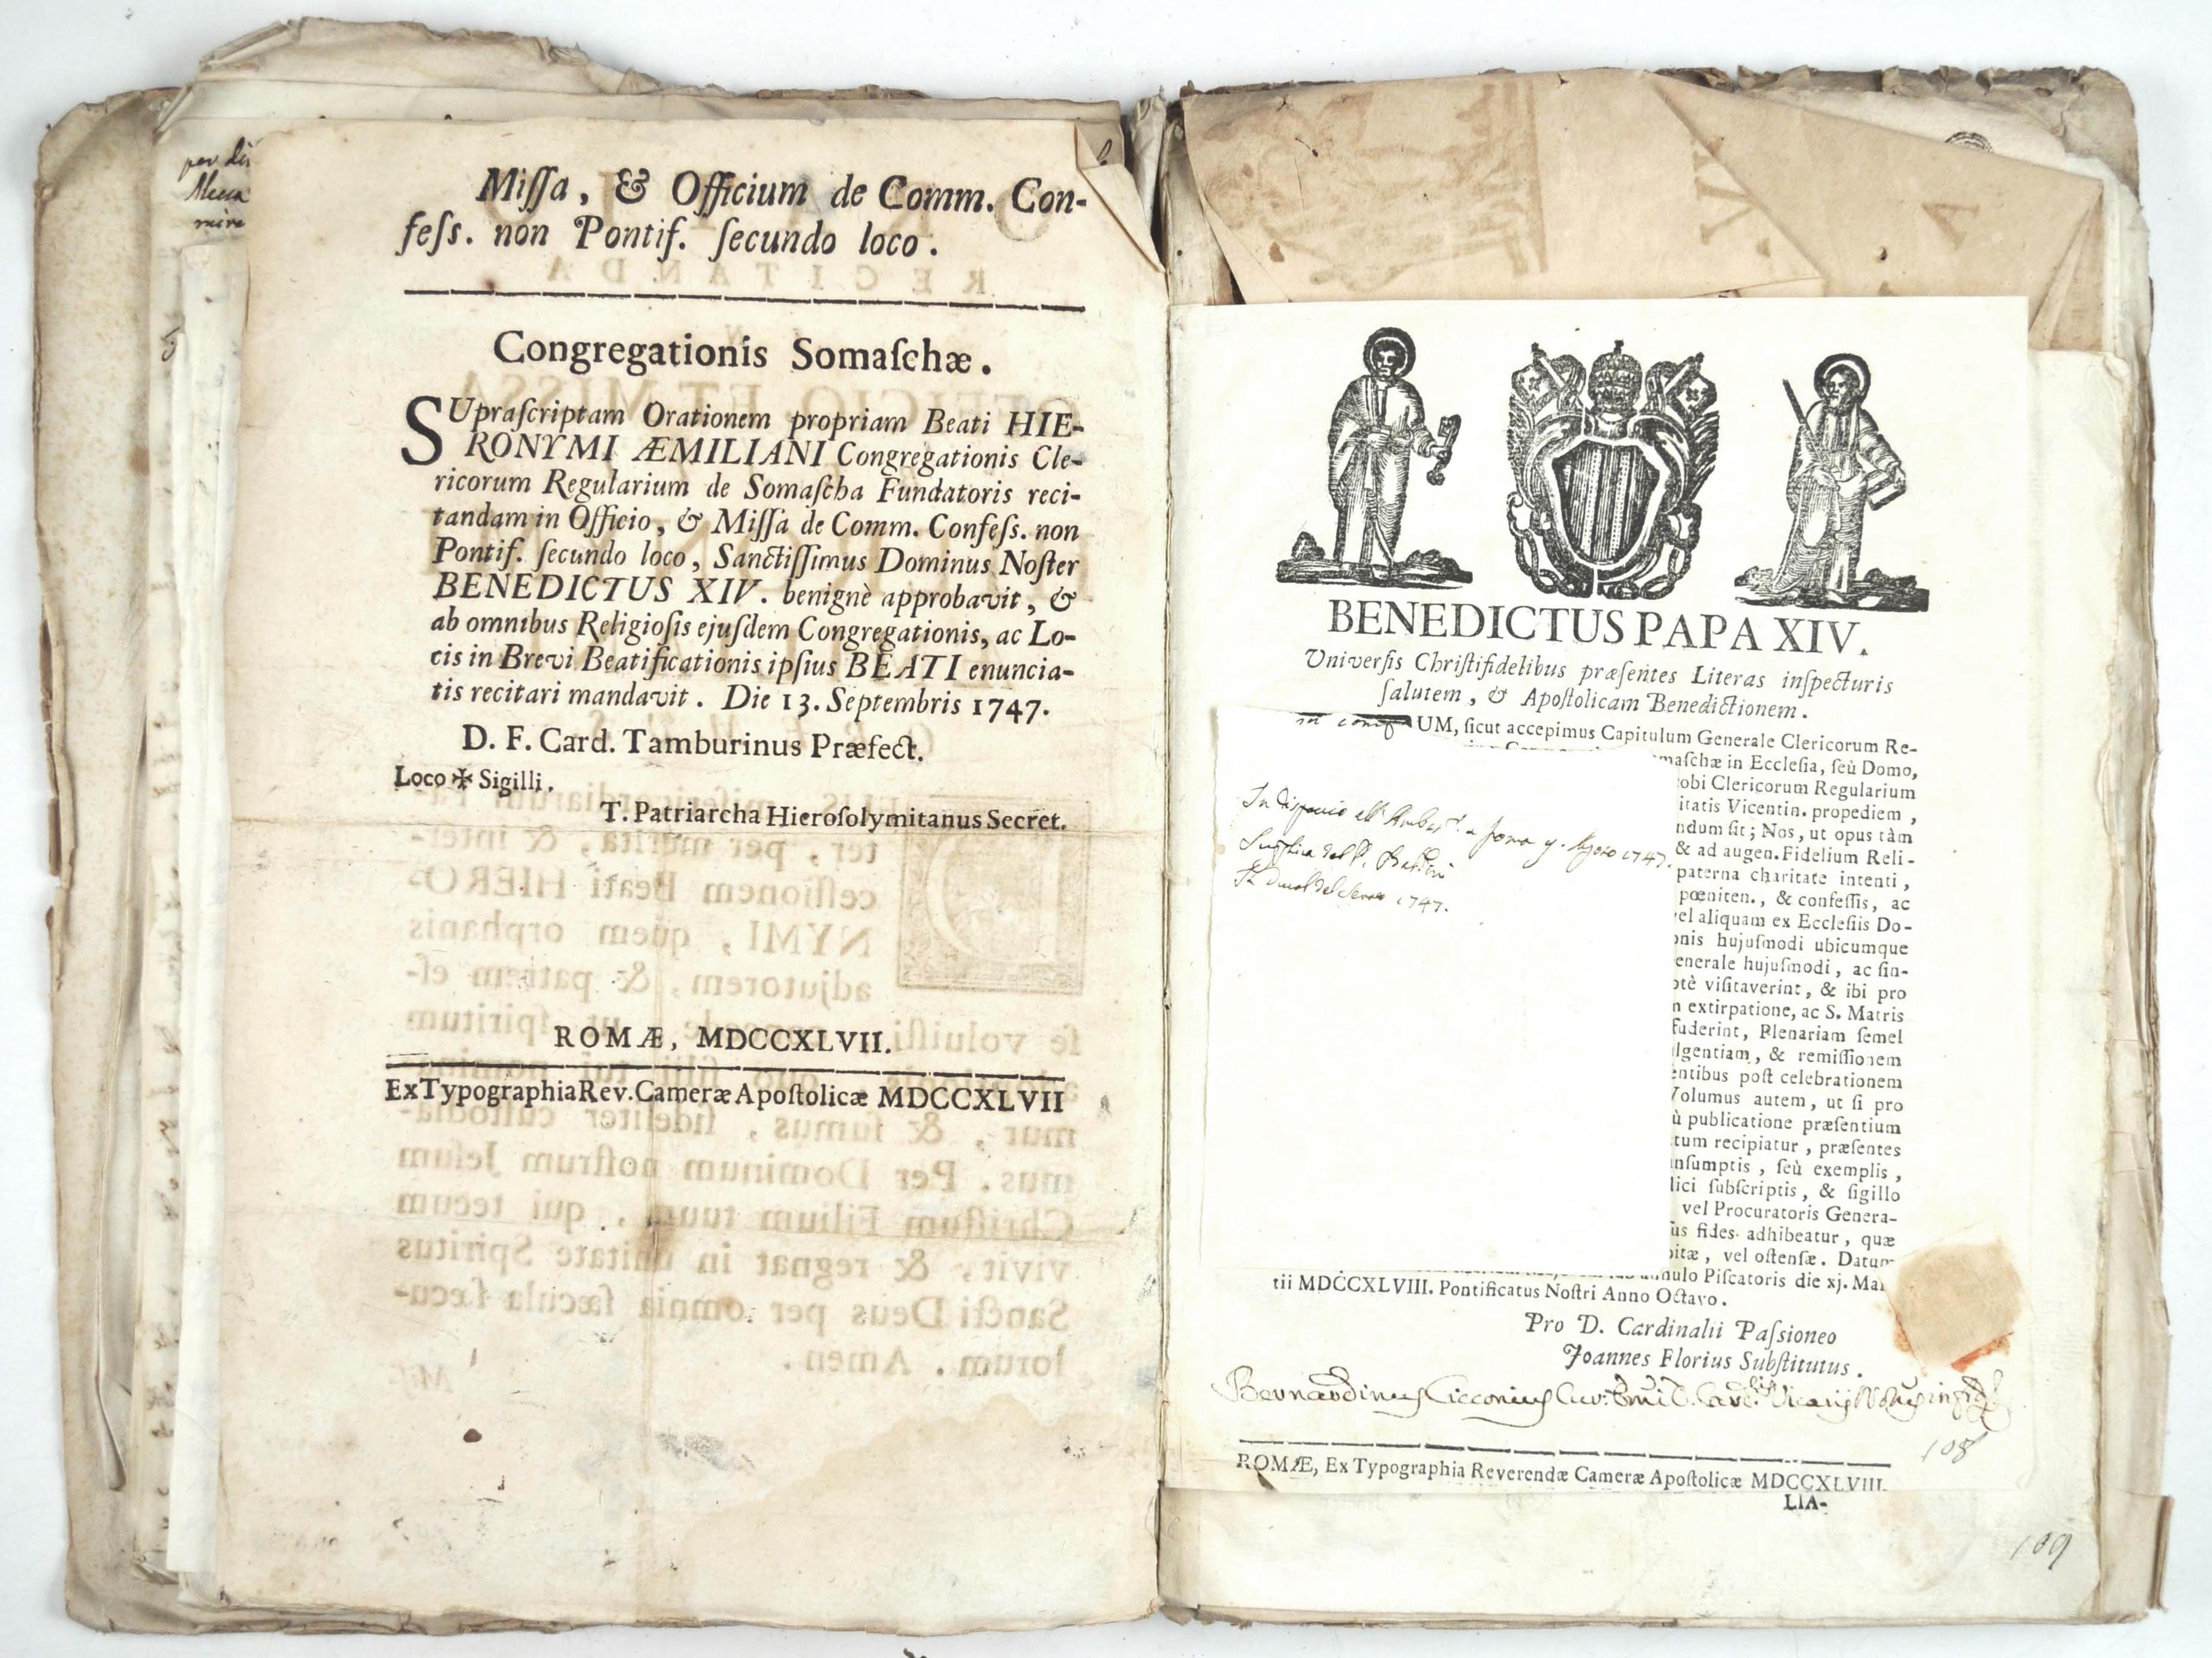 per di
Miſſa, & Officium de Comm. Con-
feſs. non Pontif. ſecundo loco.
Congregationis Somaſchæ.
SUpraſcriptam Orationem propriam Beati HIE-
RONYMI ÆMILIANI Congregationis Cle-
ricorum Regularium de Somaſcha Fundatoris reci-
tandam in Officio, & Miſſa de Comm. Confeſs. non
Pontif. ſecundo loco, Sanctiſſimus Dominus Noſter
BENEDICTUS XIV. benignè approbavit, &
ab omnibus Religioſis ejuſdem Congregationis, ac Lo-
cis in Brevi Beatificationis ipſius BEATI enuncia-
tis recitari mandavit. Die 13. Septembris 1747.
D. F. Card. Tamburinus Præfect.
Loco ✠ Sigilli.
T. Patriarcha Hieroſolymitanus Secret.
ROMÆ, MDCCXLVII.
Ex Typographia Rev. Cameræ Apoſtolicæ MDCCXLVII
BENEDICTUS PAPA XIV.
Univerſis Chriſtifidelibus præſentes Literas inſpecturis
ſalutem, & Apoſtolicam Benedictionem.
UM, ſicut accepimus Capitulum Generale Clericorum Re-
maſchæ in Eccleſia, ſeù Domo,
obi Clericorum Regularium
itatis Vicentin. propediem,
ndum ſit; Nos, ut opus tàm
& ad augen. Fidelium Reli-
paterna charitate intenti,
pœniten., & confeſſis, ac
el aliquam ex Eccleſiis Do-
onis hujuſmodi ubicumque
enerale hujuſmodi, ac ſin-
otè viſitaverint, & ibi pro
m extirpatione, ac S. Matris
fuderint, Plenariam ſemel
lgentiam, & remiſſionem
entibus poſt celebrationem
Volumus autem, ut ſi pro
ù publicatione præſentium
tum recipiatur, præſentes
nſumptis, ſeù exemplis,
lici ſubſcriptis, & ſigillo
vel Procuratoris Genera-
us fides adhibeatur, quæ
bitæ, vel oſtenſæ. Datum
nulo Piſcatoris die xj. Mar
tii MDCCXLVIII. Pontificatus Noſtri Anno Octavo.
Pro D. Cardinali Paſsioneo
Joannes Florius Subſtitutus.
1747.
1747.
Bernardinus Cicconius
108
ROMÆ, Ex Typographia Reverendæ Cameræ Apoſtolicæ MDCCXLVIII.
LIA-
109